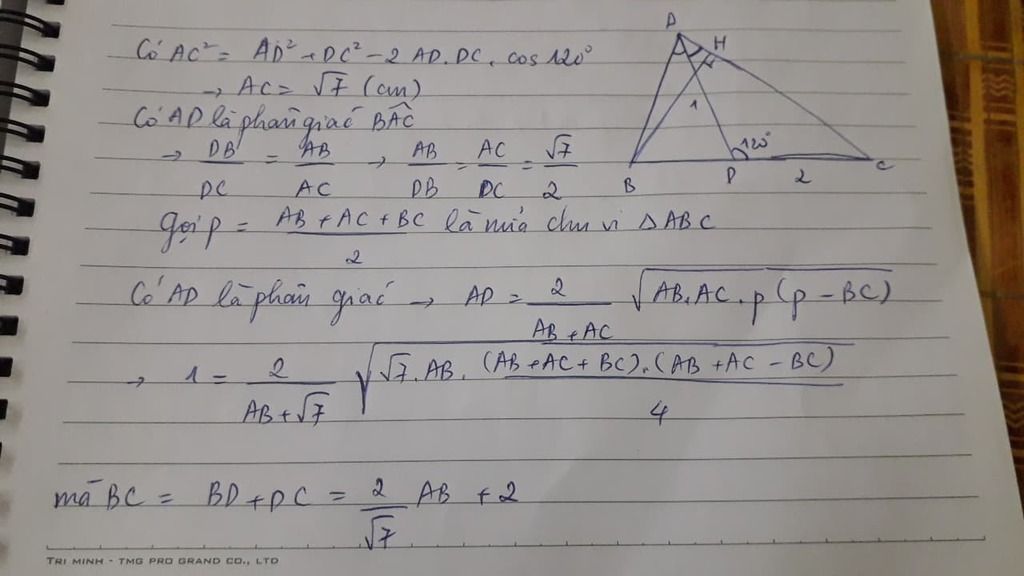 Có AC² = AD² + DC² - 2 AD.DC. cos 120°
→ AC = √7 (cm)
Có AD là phân giác BAC
→ DB/DC = AB/AC → AB/DB = AC/DC = √7/2
Gọi p = (AB + AC + BC)/2 là nửa chu vi ΔABC
Có AD là phân giác → AD = 2/(AB + AC) √(AB.AC.p(p - BC))
→ 1 = 2/(AB + √7) √(√7.AB.(AB + AC + BC).(AB + AC - BC)/4)
mà BC = BD + DC = 2/√7 AB + 2
A
H
1
120°
B
D
2
C
TRI MINH - TMG PRO GRAND CO., LTD